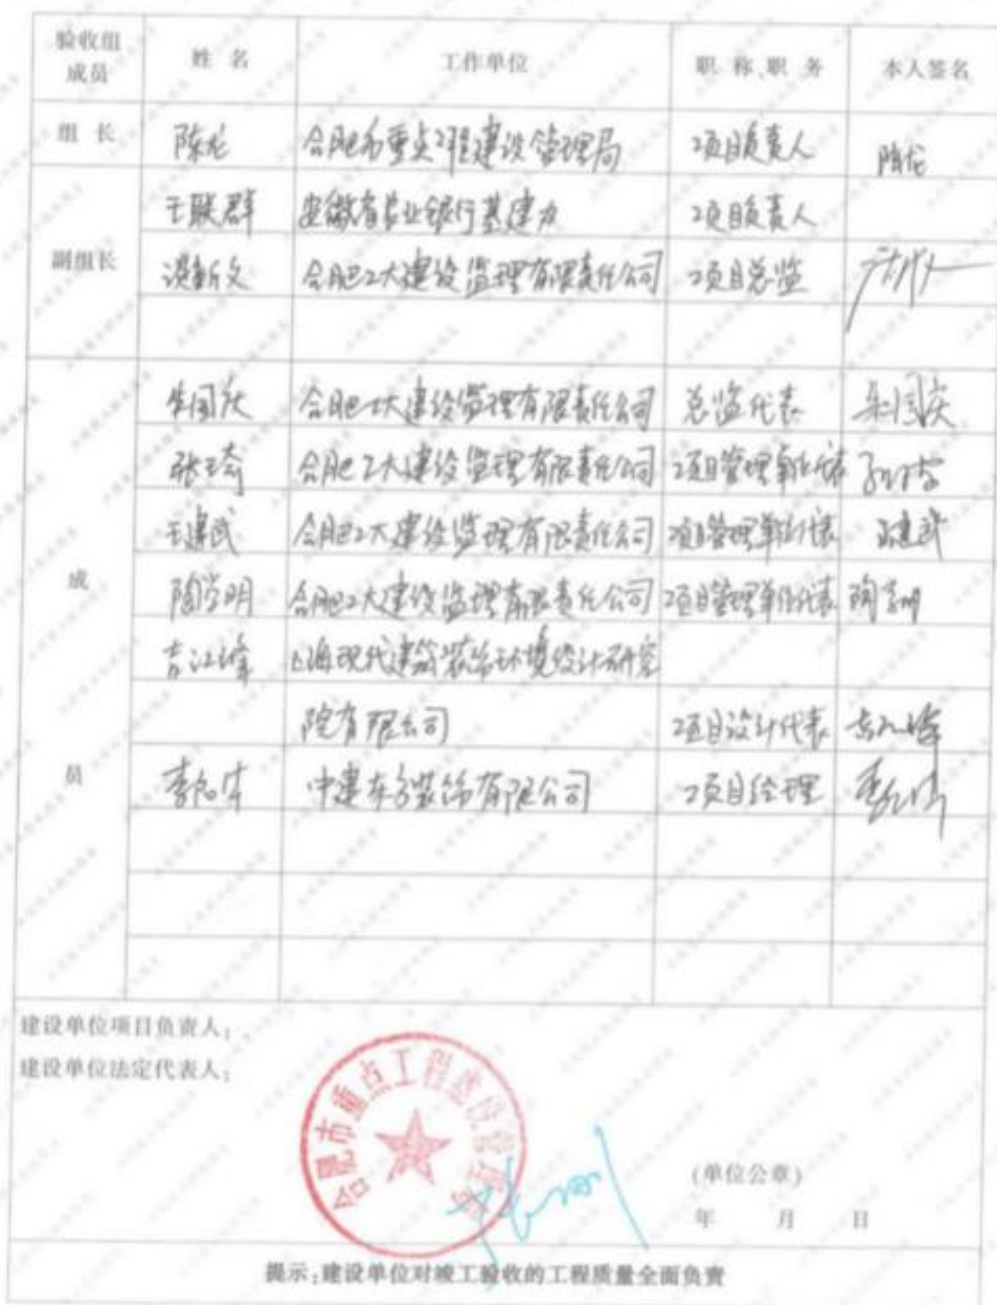 验收组成员 姓 名 工作单位 职 称、职 务 本人签名
组 长 陈龙 合肥市重点工程建设管理局 项目负责人 陈龙
副组长 王联群 安徽省农业银行基建办 项目负责人
谈新文 合肥工大建设监理有限责任公司 项目总监
成 员
朱国庆 合肥工大建设监理有限责任公司 总监代表 朱国庆
张琦 合肥工大建设监理有限责任公司 项目管理单位代表
王建武 合肥工大建设监理有限责任公司 项目管理单位代表 王建武
陶学明 合肥工大建设监理有限责任公司 项目管理单位代表 陶学明
吉江峰 上海现代建筑装饰环境设计研究
院有限公司 项目设计代表 吉江峰
中建东方装饰有限公司 项目经理
建设单位项目负责人:
建设单位法定代表人:
合肥市重点工程建设管理局
(单位公章)
年 月 日
提示:建设单位对竣工验收的工程质量全面负责